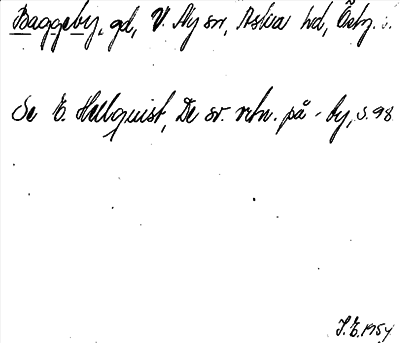 Baggeby, gd, V. Ny sn, Aska hd, Östg.
Se E. Hellquist, De sv. ortn. på -by, s. 98.
J.E. 1954